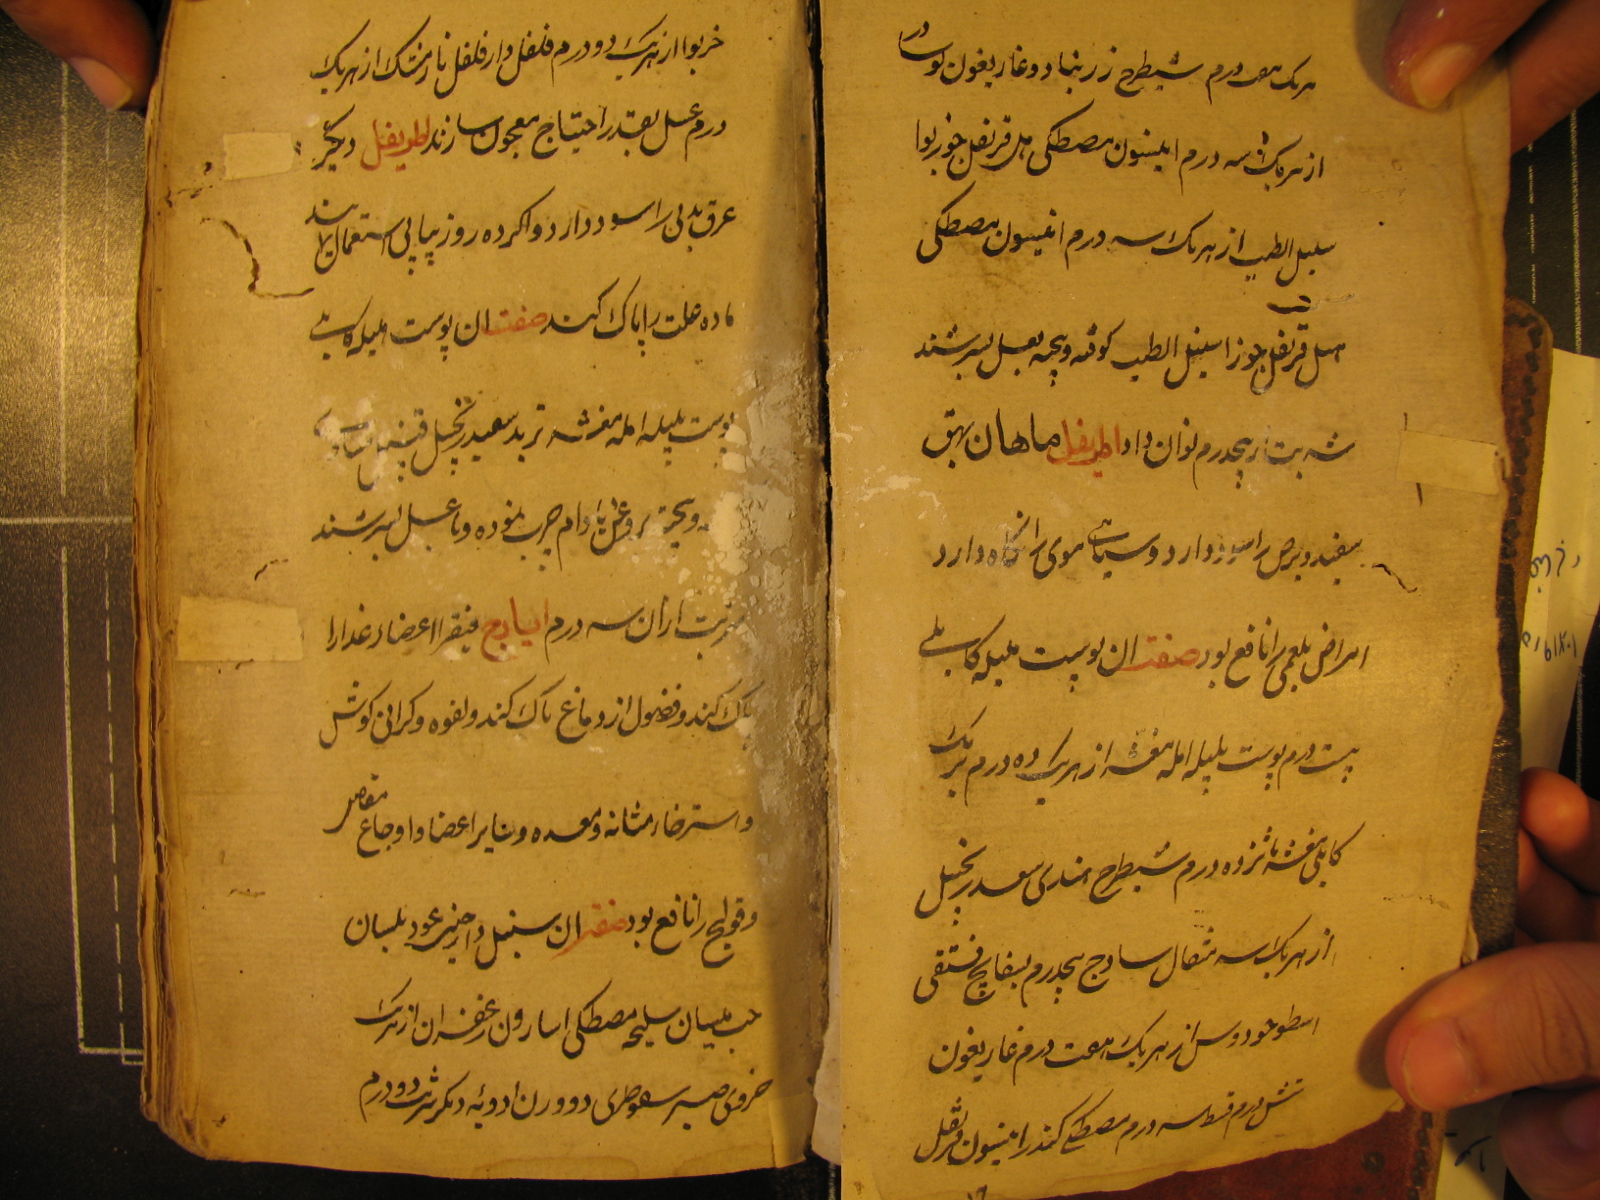 هریک هفت درم شیطرح زرنباد و غاریقون
از هریک سه درم انیسون مصطکی هل قرنفل جوزبوا
سنبل الطیب از هریک سه درم انیسون مصطکی
هل قرنفل جوزا سنبل الطیب کوفته و بیخته بعسل بسرشند
شربت پنجدرم توان داد اطریفل ماهان بهق
سفید و برص را سود دارد و سیاهی موی را نگاه دارد
امراض بلغمی را نافع بود صفت ان پوست هلیله کابلی
بیست درم پوست بلیله امله مقشر از هریک ده درم برنگ
کابلی مقشر شانزده درم شیطرح هندی سعد زنجبیل
از هریک سه مثقال سادج پنجدرم بسفایج فستقی
اسطوخودوس از هریک هفت درم غاریقون
شش درم قسط سه درم مصطکی کندر انیسون قرنفل
خربوا از هریک دو درم فلفل دارفلفل نارمشک از هریک
درم عسل بقدر احتیاج معجون سازند اطریفل دیگر
عرق بدنی را سود دارد و اگر ده روز پیاپی استعمال نمایند
ماده علت را پاک کند صفت ان پوست هلیله کابلی
پوست بلیله امله مقشر تربد سفید زنجبیل
و بیخته بروغن بادام چرب نموده و با عسل بسرشند
شربت ازان سه درم ایارج فیقرا اعضاء غدا را
پاک کند و فضول از دماغ پاک کند و لقوه و کرانی کوش
و استرخاء مثانه و معده و سایر اعضا و اوجاع مفاصل
و قولنج را نافع بود صفت ان سنبل دارچینی عود بلسان
حب بلسان سلیخه مصطکی اسارون زعفران از هریک
جزوی صبر سقوطری دو وزن ادویه دیگر شربت دو درم